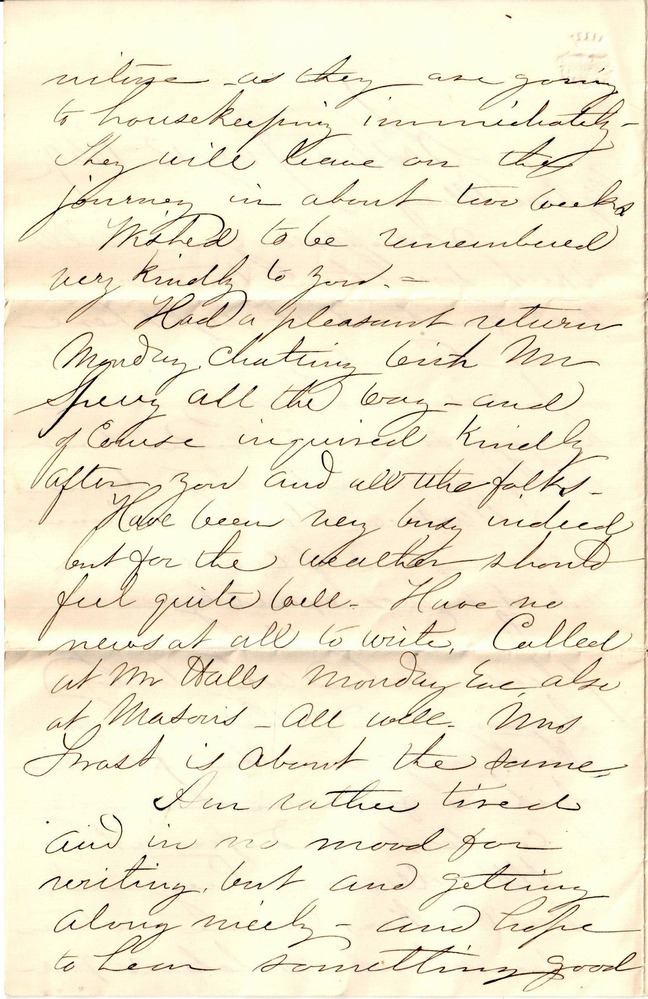 niture - as they are going
to housekeeping immediately -
They will leave on the
journey in about two weeks
Wished to be remembered
very kindly to you. -
Had a pleasant return
Monday, chatting with Mr
all the way - and
of Course inquired kindly
after you and all the folks -
Have been very busy indeed
but for the weather should
feel quite well - Have no
news at all to write, Called
at Mr Halls Monday Eve, also
at Masons - All well. Mrs
is about the same,
Am rather tired
and in no mood for
writing, but and getting
along nicely - and hope
to hear something good